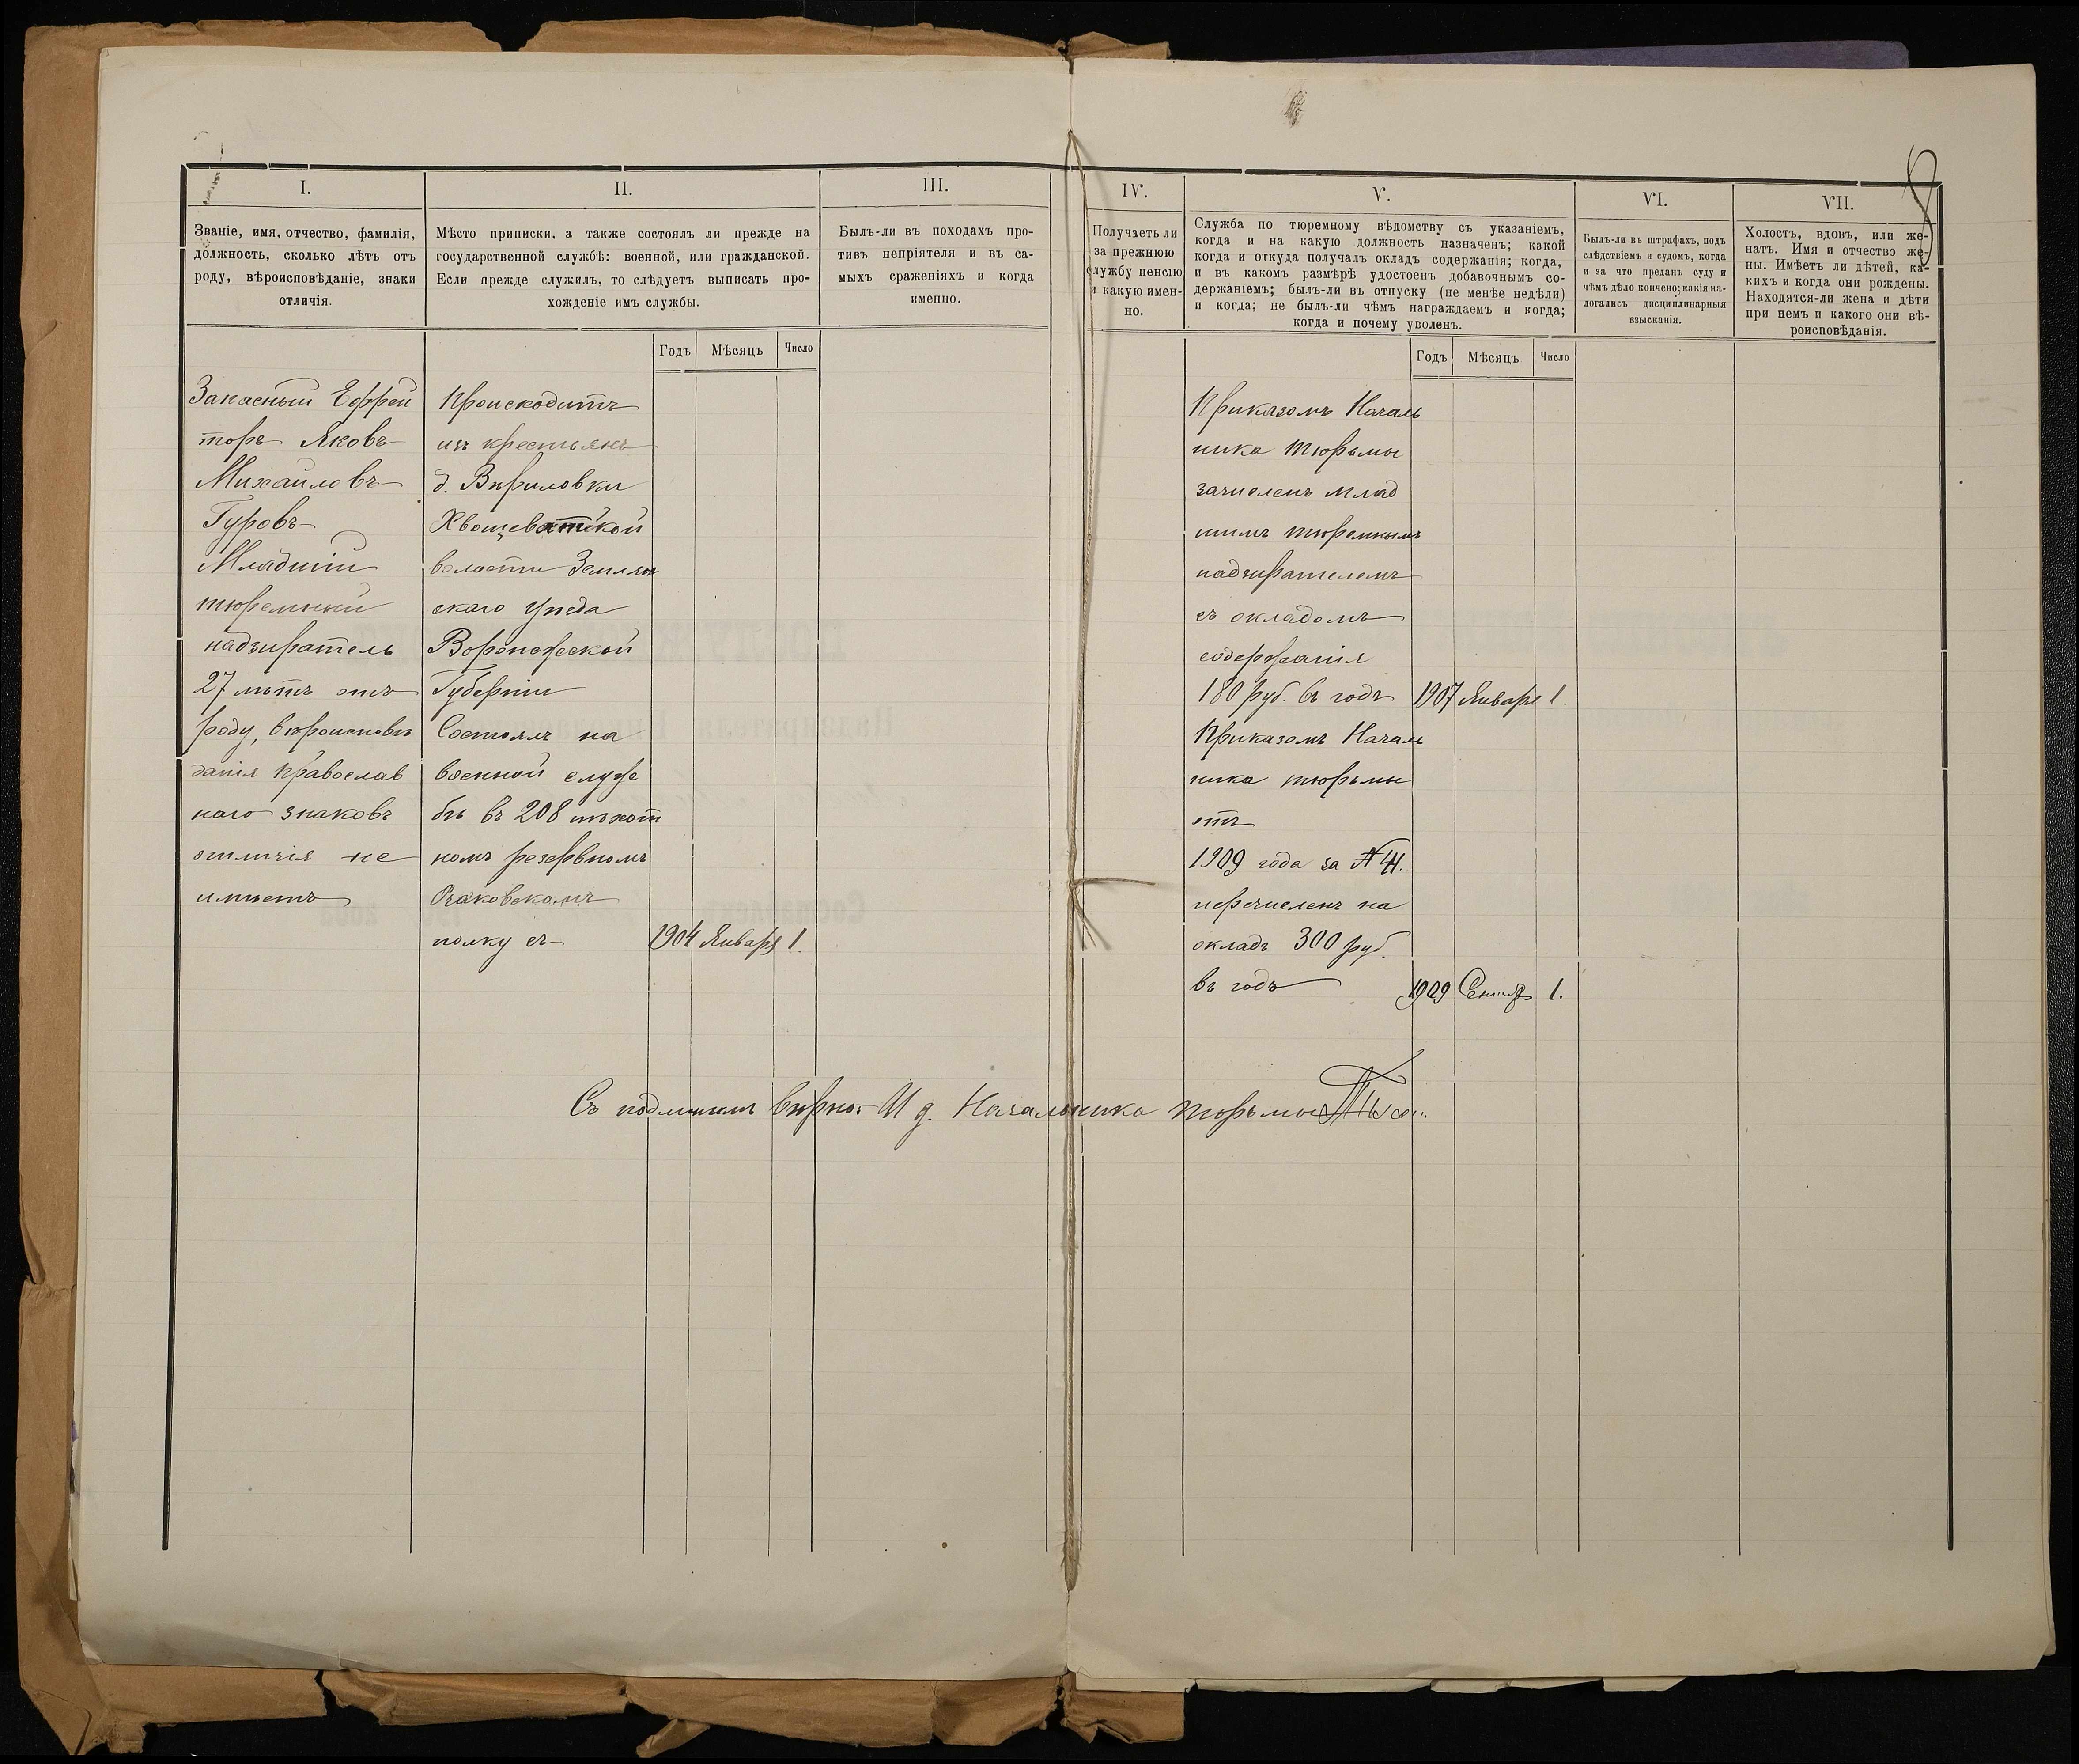 I.
Званіе, имя, отчество, фамилія,
должность, сколько лѣтъ отъ
роду, вѣроисповѣданіе, знаки
отличія.
Запасный Ефрей
торъ Яковъ
Михайловъ
Гуровъ
Младшій
тюремный
надзиратель
27 лѣтъ отъ
роду, вѣроисповѣ
данія Православ
наго знаковъ
отличія не
имѣетъ
II.
Мѣсто приписки, а также состоялъ ли прежде на
государственной службѣ: военной, или гражданской.
Если прежде служилъ, то слѣдуетъ выписать про-
хожденіе имъ службы.
Годъ Мѣсяцъ Число
Происходитъ
изъ крестьянъ
д.
Хвощеватской
волости Землян
скаго Уѣзда
Воронежской
Губерніи
Состоялъ на
военной служ
бѣ въ 208 пѣхот
номъ резервномъ
Очаковскомъ
полку съ 1904 Января 1.
III.
Былъ-ли въ походахъ про-
тивъ непріятеля и въ са-
мыхъ сраженіяхъ и когда
именно.
IV.
Получаетъ ли
за прежнюю
службу пенсію
и какую имен-
но.
V.
Служба по тюремному вѣдомству съ указаніемъ,
когда и на какую должность назначенъ; какой
когда и откуда получалъ окладъ содержанія; когда,
и въ какомъ размѣрѣ удостоенъ добавочнымъ со-
держаніемъ; былъ-ли въ отпуску (не менѣе недѣли)
и когда; не былъ-ли чѣмъ награждаемъ и когда;
когда и почему уволенъ.
Годъ Мѣсяцъ Число
Приказомъ Началь
ника тюрьмы
зачисленъ млад
шимъ тюремнымъ
надзирателемъ
съ окладомъ
содержанія
180 руб. въ годъ 1907 Января 1.
Приказомъ Началь
ника тюрьмы
отъ
1909 года за №
перечисленъ на
окладъ 300 руб.
въ годъ 1909 Сентяб 1.
VI.
Былъ-ли въ штрафахъ, подъ
слѣдствіемъ и судомъ, когда
и за что преданъ суду и
чѣмъ дѣло кончено; какія на-
логались дисциплинарныя
взысканія.
VII.
Холостъ, вдовъ, или же-
натъ. Имя и отчество же-
ны. Имѣетъ ли дѣтей, ка-
кихъ и когда они рождены.
Находятся-ли жена и дѣти
при немъ и какого они вѣ-
роисповѣданія.
Съ подлиннымъ вѣрно: И д. Начальника тюрьмы